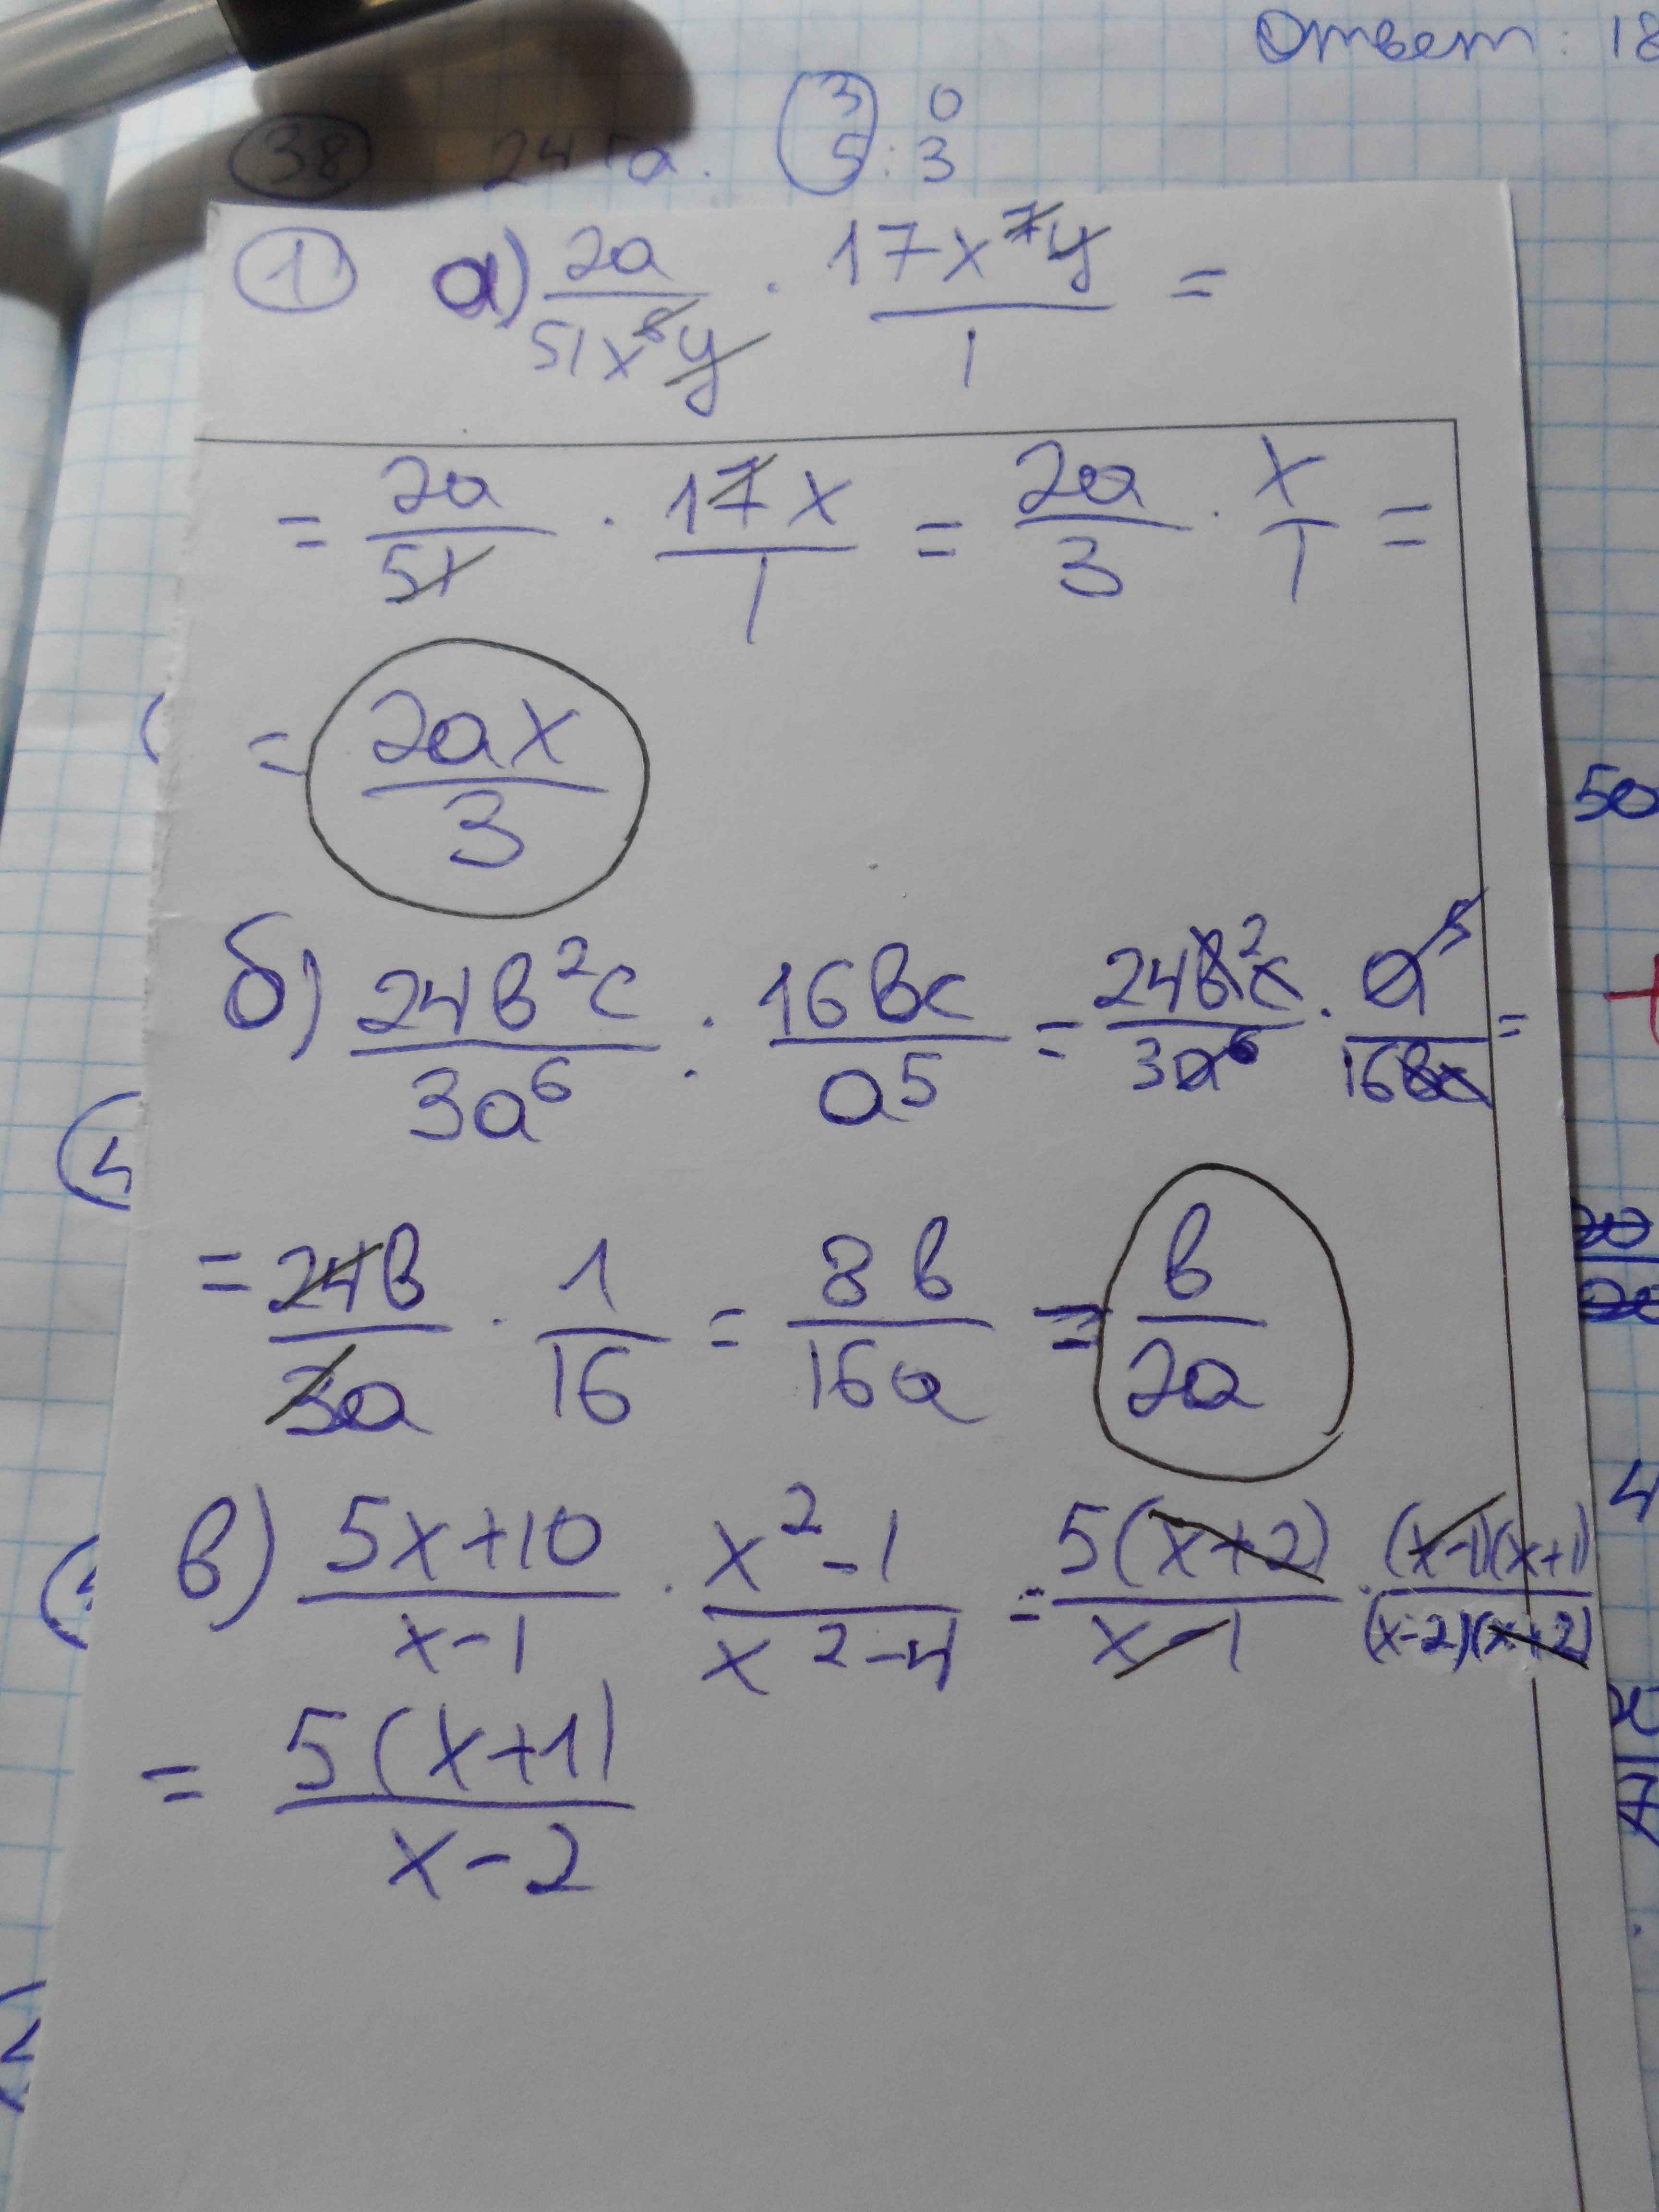 Ответ: 18
3 0
38 5:3
1 а) 2a/51x⁶y · 17x⁷y/1 =
= 2a/51 · 17x/1 = 2a/3 · x/1 =
= 2ax/3
б) 24в²c/3a⁶ : 16вc/a⁵ = 24в²c/3a⁶ · a⁵/16вc =
= 24в/3a · 1/16 = 8в/16a = в/2a
в) 5x+10/x-1 · x²-1/x²-4 = 5(x+2)/x-1 · (x-1)(x+1)/(x-2)(x+2)
= 5(x+1)/x-2
50
4
7